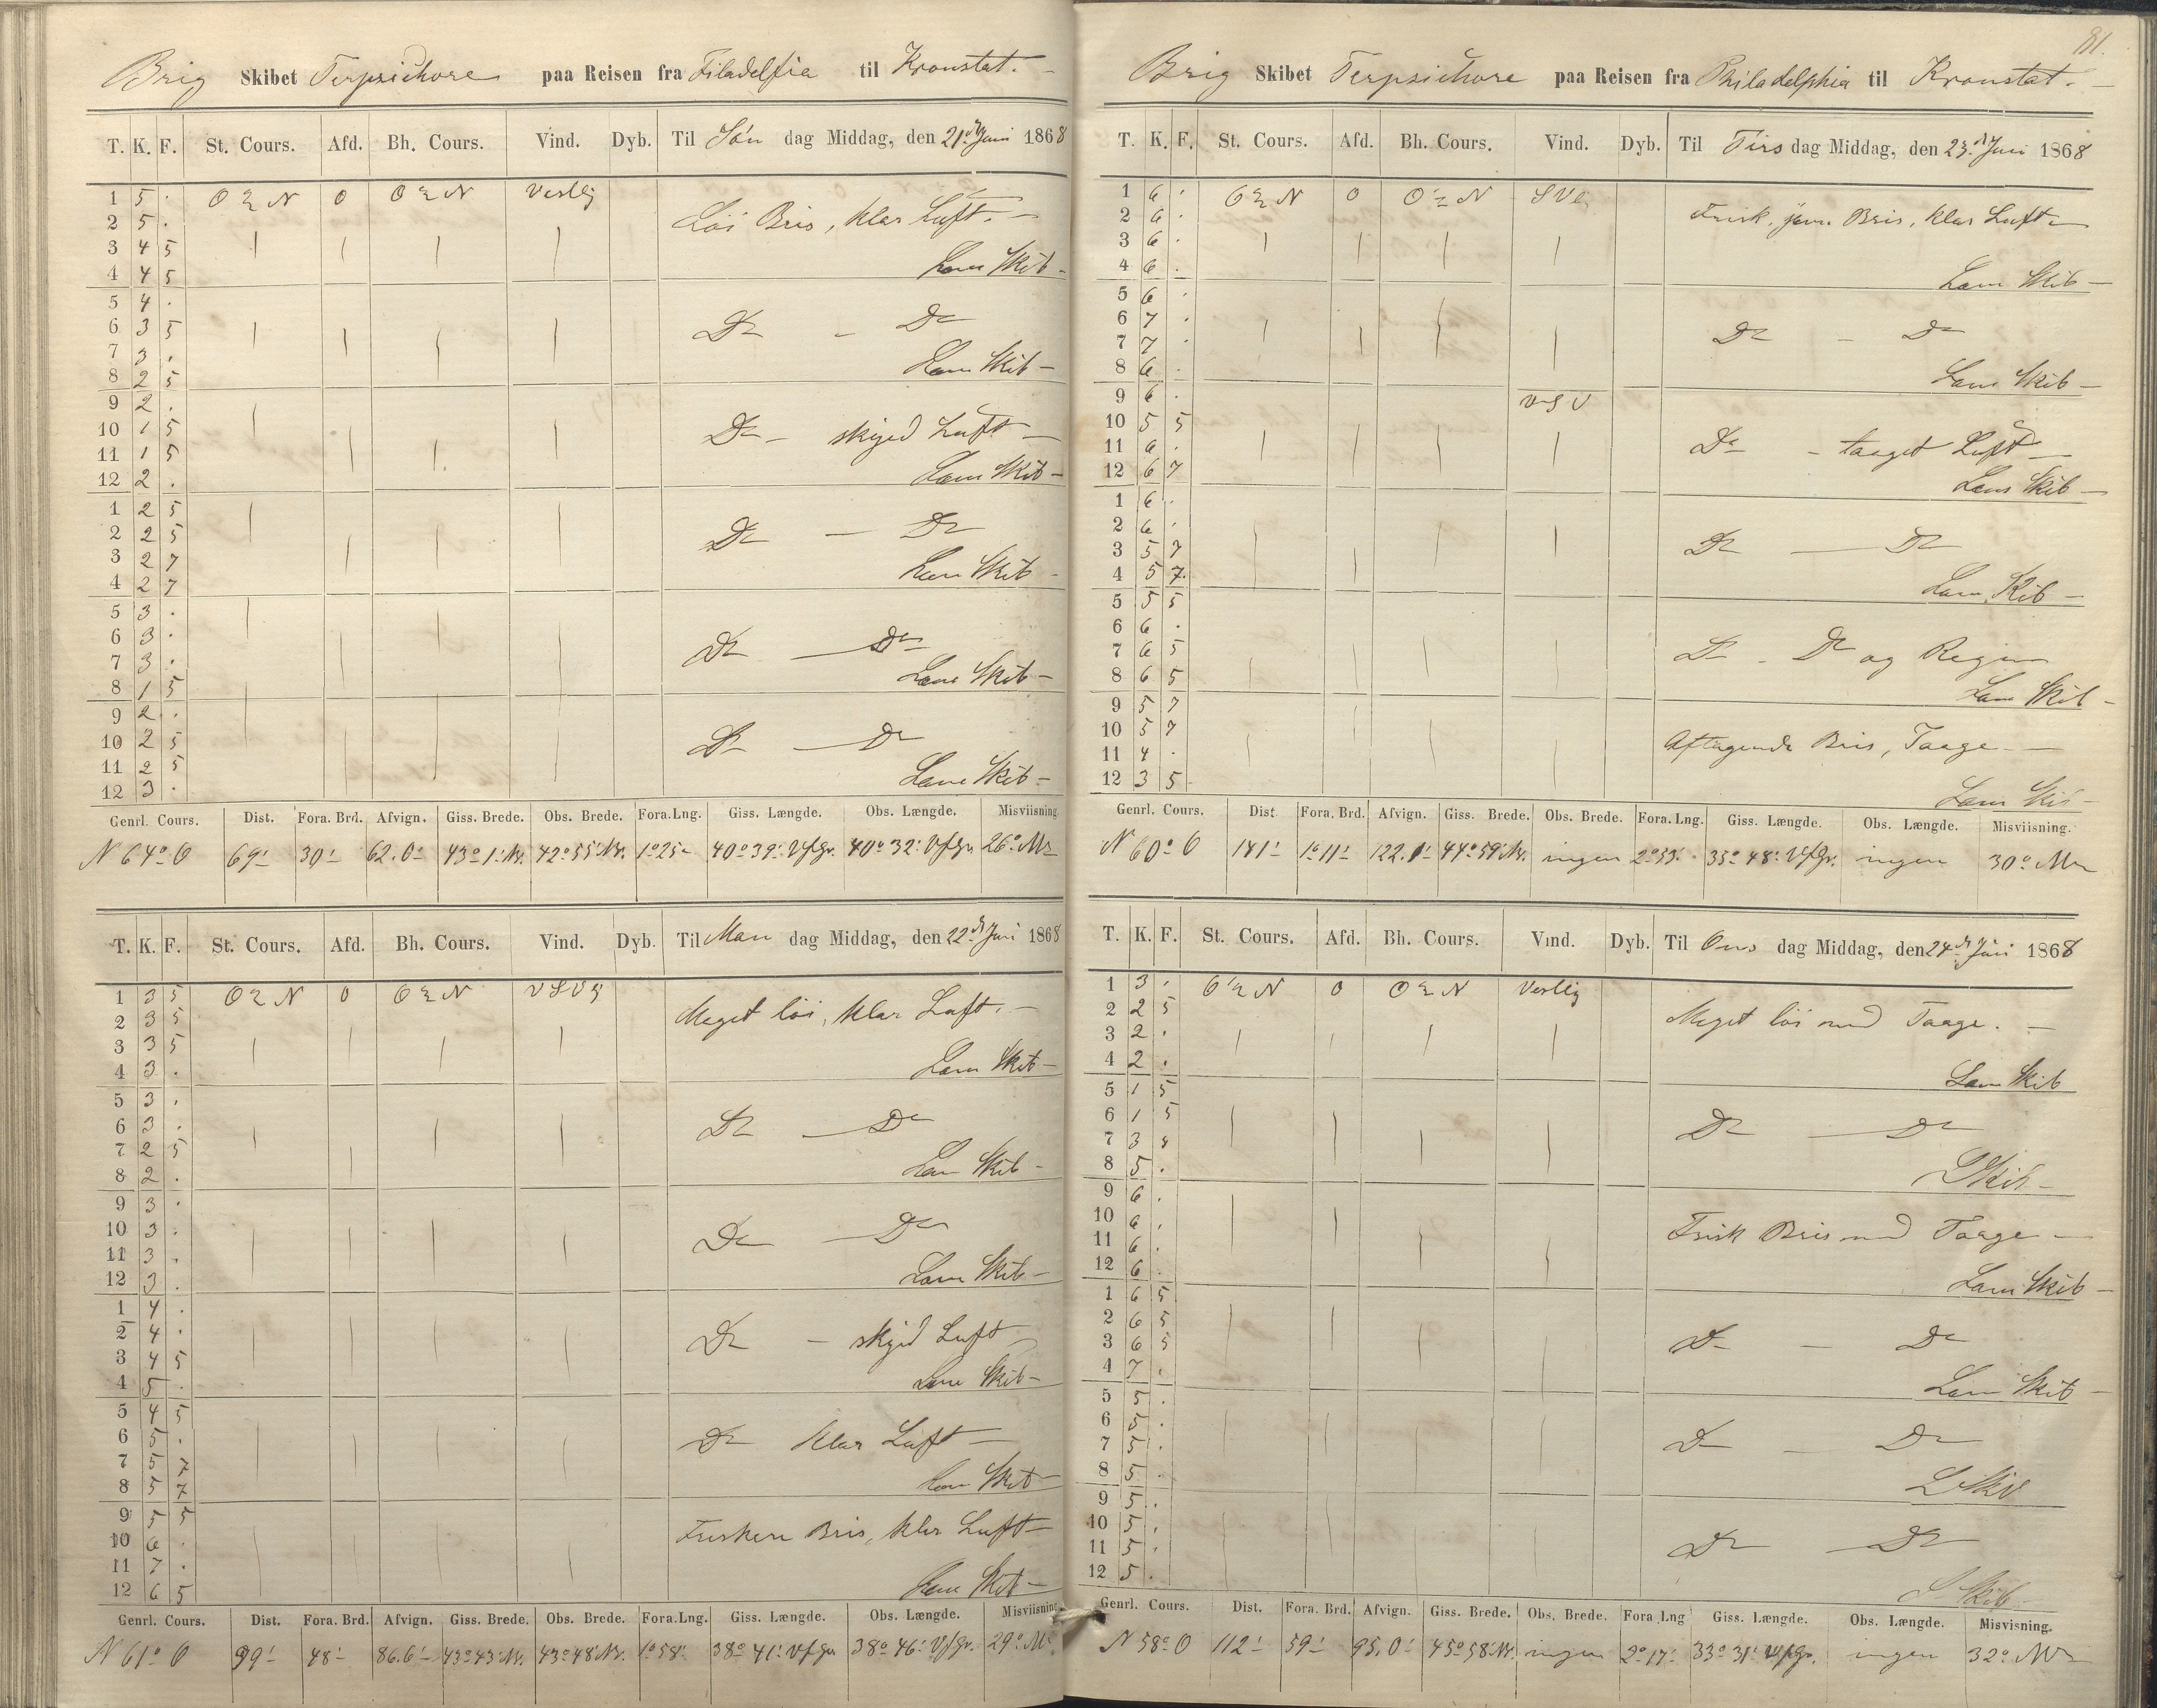 Brig Skibet Terpsichore paa Reisen fra Filadelfia til Kronstat.
T. K. F. St. Cours. Afd. Bh. Cours. Vind. Dyb. Til Søn dag Middag, den 21. Juni 1868
1 5 . O N O O N Vestlig
Löi Bris, klar Luft. —
2 5 .
3 4 5
4 4 5
Lens Skib —
5 4 .
6 3 5
Do — Do
7 3 .
8 2 5
Lens Skib —
9 2 .
10 1 5
Do — skyed Luft —
11 1 5
12 2 .
Lens Skib —
1 2 5
2 2 5
Do — Do
3 2 7
4 2 7
Lens Skib —
5 3 .
6 3 .
Do — Do
7 3 .
8 1 5
Lens Skib —
9 2 .
10 2 5
Do — Do
11 2 5
12 3 .
Lens Skib —
Genrl. Cours. Dist. Fora. Brd. Afvign. Giss. Brede. Obs. Brede. Fora.Lng. Giss. Længde. Obs. Længde. Misviisning.
N 64° O 69' 30' 62.0' 43° 1' 42° 55' 1° 25' 40° 39' 40° 32' 26°
T. K. F. St. Cours. Afd. Bh. Cours. Vind. Dyb. Til Man dag Middag, den 22. Juni 1868
1 3 5 O N O O N VSV
Meget löi, klar Luft. —
2 3 5
3 3 5
4 3 .
Lens Skib —
5 3 .
6 3 .
Do — Do
7 2 5
8 2 .
Lens Skib —
9 3 .
10 3 .
Do — Do
11 3 .
12 3 .
Lens Skib —
1 4 .
2 4 .
Do — skyed Luft
3 4 5
4 5 .
Lens Skib —
5 4 5
6 5 .
Do klar Luft —
7 5 7
8 5 7
Lens Skib —
9 5 5
10 6 .
Friskere Bris, klar Luft —
11 7 .
12 6 5
Lens Skib —
Genrl. Cours. Dist. Fora. Brd. Afvign. Giss. Brede. Obs. Brede. Fora.Lng. Giss. Længde. Obs. Længde. Misviisning
N 61° O 99' 48' 86.6' 43° 43' 43° 48' 1° 58' 38° 41' 38° 46' 29°
81.
Brig Skibet Terpsichore paa Reisen fra Philadelphia til Kronstat. —
T. K. F. St. Cours. Afd. Bh. Cours. Vind. Dyb. Til Tirs dag Middag, den 23. Juni 1868
1 6 . O N O O N
Frisk, Bris, klar Luft —
2 6 .
3 6 .
4 6 .
Lens Skib —
5 6 .
6 7 .
Do — Do
7 7 .
8 6 .
Lens Skib —
9 6 . VSV
10 5 5
Do — taaget Luft —
11 6 .
12 6 7
Lens Skib —
1 6 .
2 6 .
Do — Do
3 5 7
4 5 7.
Lens Skib —
5 5 5
6 6 .
Do — Do og Regn
7 6 5
8 6 5
Lens Skib —
9 5 7
10 5 7
Aftagende Bris, Taage —
11 4 .
12 3 5
Lens Skib —
Genrl. Cours. Dist Fora. Brd. Afvign. Giss. Brede. Obs. Brede. Fora. Lng. Giss. Længde. Obs. Længde. Misviisning.
N 60° O 141' 1° 11' 122.1' 44° 59' ingen 2° 53' 35° 48' ingen 30°
T. K. F. St. Cours. Afd. Bh. Cours. Vind. Dyb. Til Ons dag Middag, den 24. Juni 1868
1 3 . O N O O N Vestlig
Meget löi med Taage. —
2 2 5
3 2 .
4 2 .
Lens Skib
5 1 5
6 1 5
Do — Do
7 3
8 5 .
L Skib —
9 6 .
10 6 .
Frisk Bris med Taage —
11 6 .
12 6 .
Lens Skib —
1 6 5
2 6 5
Do — Do
3 6 5
4 7 .
Lens Skib —
5 5 .
6 5 .
Do — Do
7 5 .
8 5 .
L Skib
9 5 .
10 5 .
Do — Do
11 5 .
12 5 .
L Skib
Genrl. Cours. Dist. Fora. Brd. Afvign. Giss. Brede. Obs. Brede. Fora Lng Giss. Længde. Obs. Længde. Misvisning.
N 58° O 112' 59' 95.0' 45° 58' ingen 2° 17' 33° 31' ingen 32°